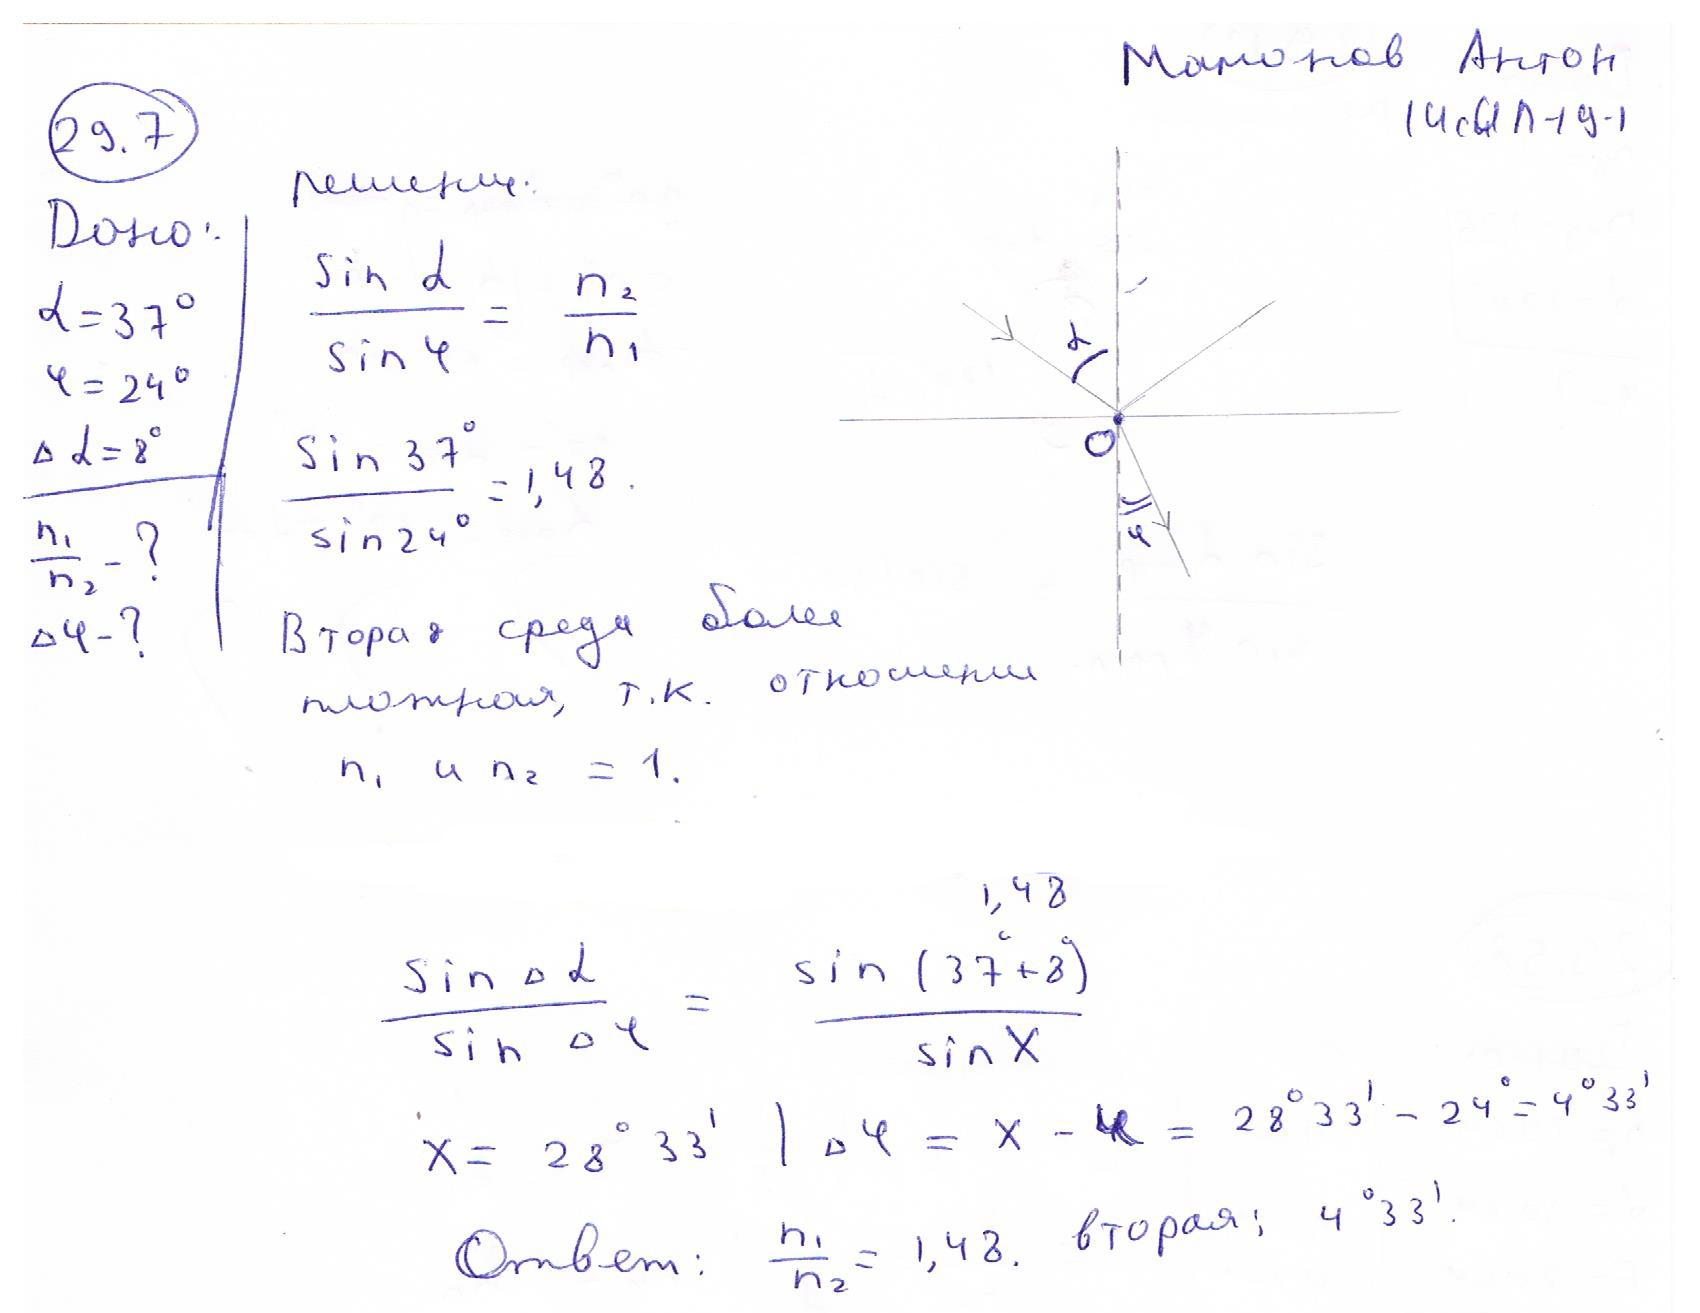 Мамонов Антон
1ИСИП-19-1
29.7
Дано:
α = 37°
φ = 24°
Δα = 8°
n₁/n₂ - ?
Δφ - ?
решение:
sin α / sin φ = n₂ / n₁
sin 37° / sin 24° = 1,48.
Вторая среда более
плотная, т.к. отношение
n₁ и n₂ = 1.
α
O
φ
1,48
sin Δα / sin Δφ = sin (37° + 8°) / sin X
x = 28° 33' | Δφ = x - φ = 28° 33' - 24° = 4° 33'
Ответ: n₁/n₂ = 1,48. вторая; 4° 33'.